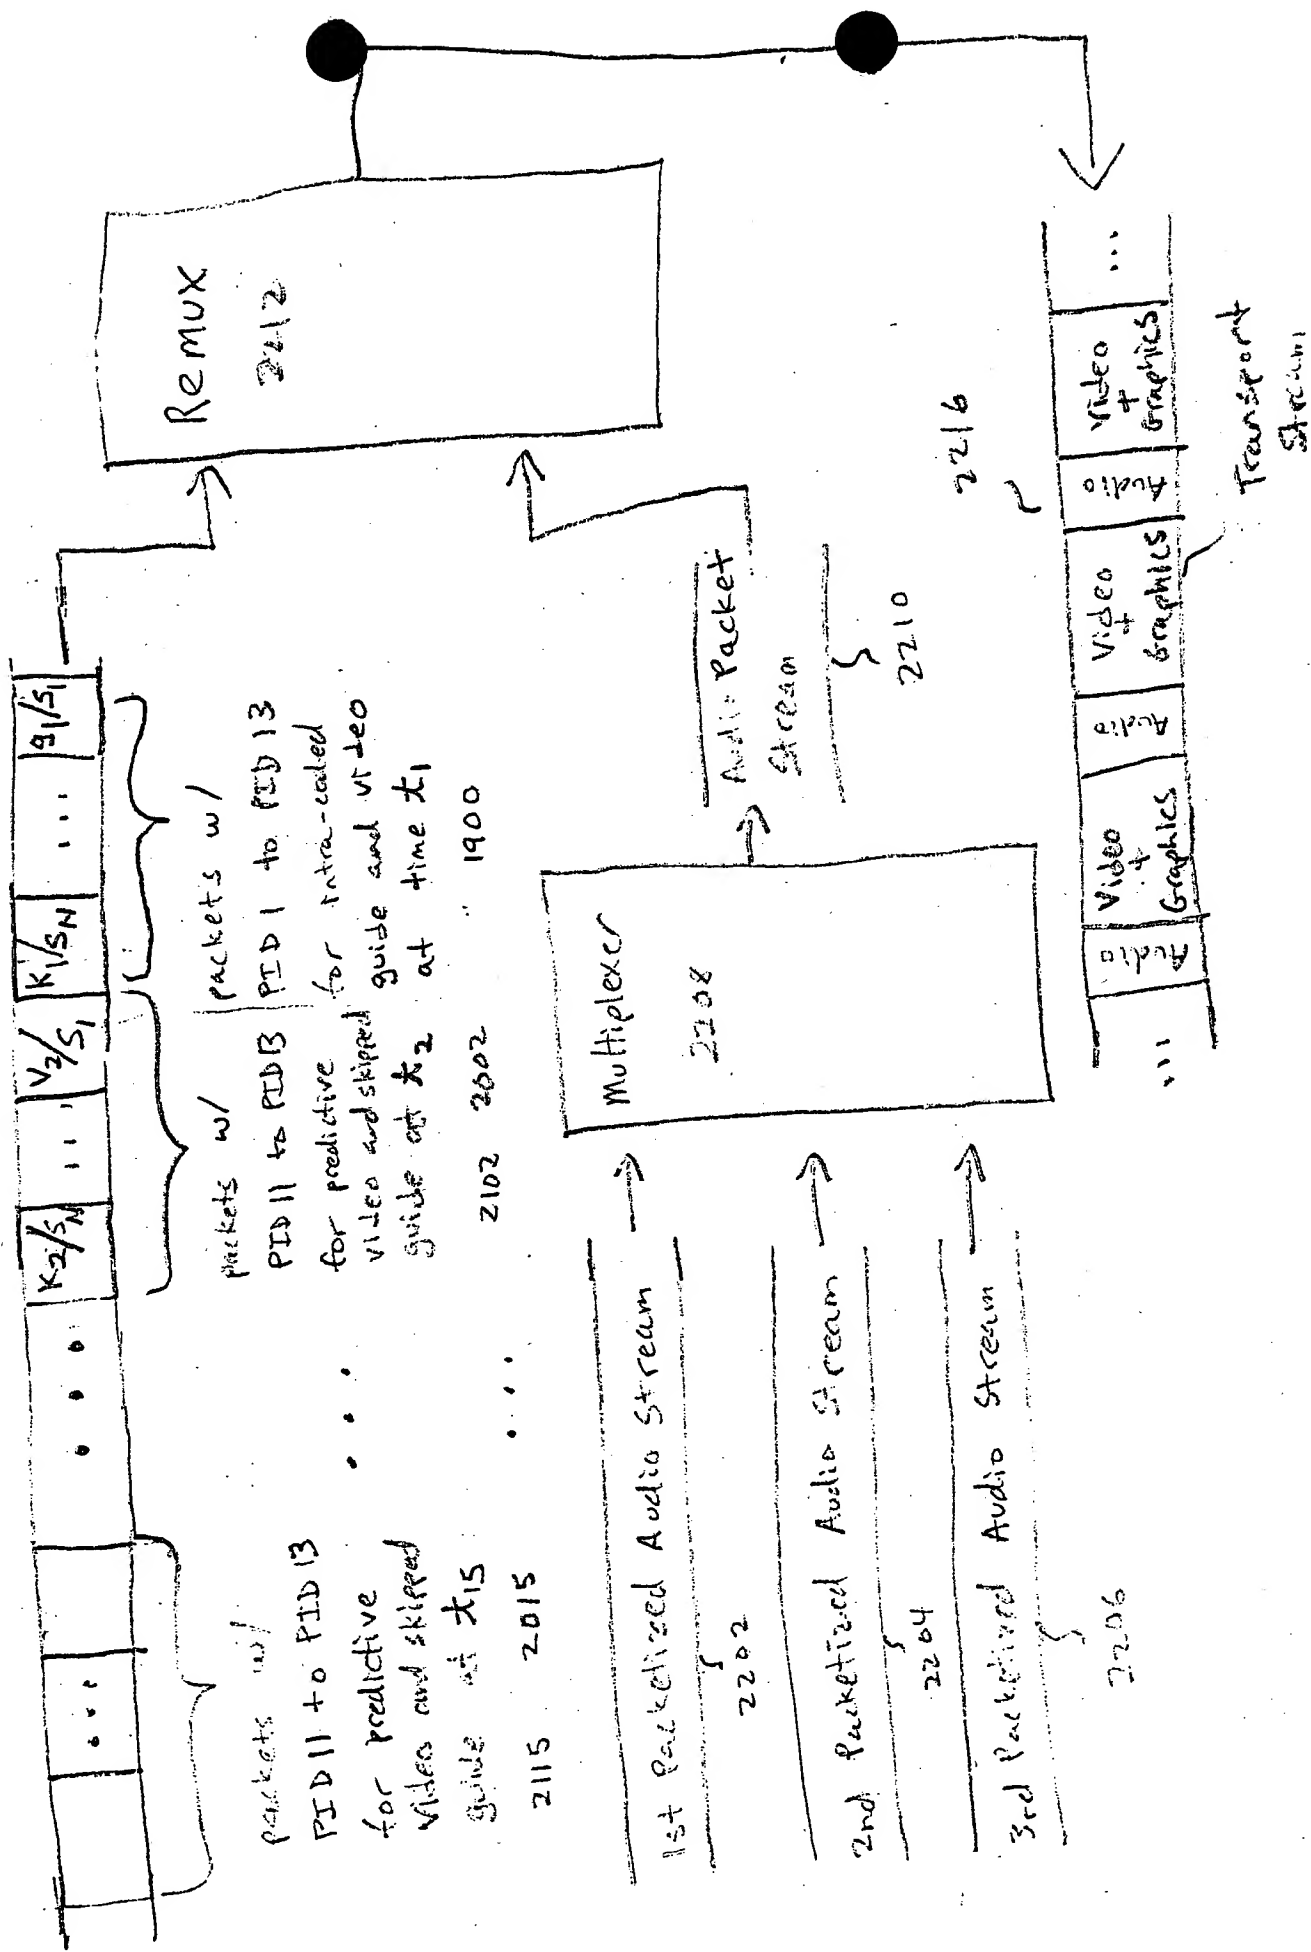 K2/SN
...
V2/S1
K1/SN
...
g1/S1
packets w/
PID 11 to PID 13
for predictive
video and skipped
guide at t15
2115 2015
...
...
packets w/
PID 11 to PID 13
for predictive
video and skipped
guide at t2
2102 2002
packets w/
PID 1 to PID 13
for intra-coded
guide and video
at time t1
1900
Remux
2212
1st Packetized Audio Stream
2202
2nd Packetized Audio Stream
2204
3rd Packetized Audio Stream
2206
Multiplexer
2208
Audio Packet
Stream
2210
2216
...
Audio
Video
+
Graphics
Audio
Video
+
Graphics
Audio
Video
+
Graphics
...
Transport
Stream